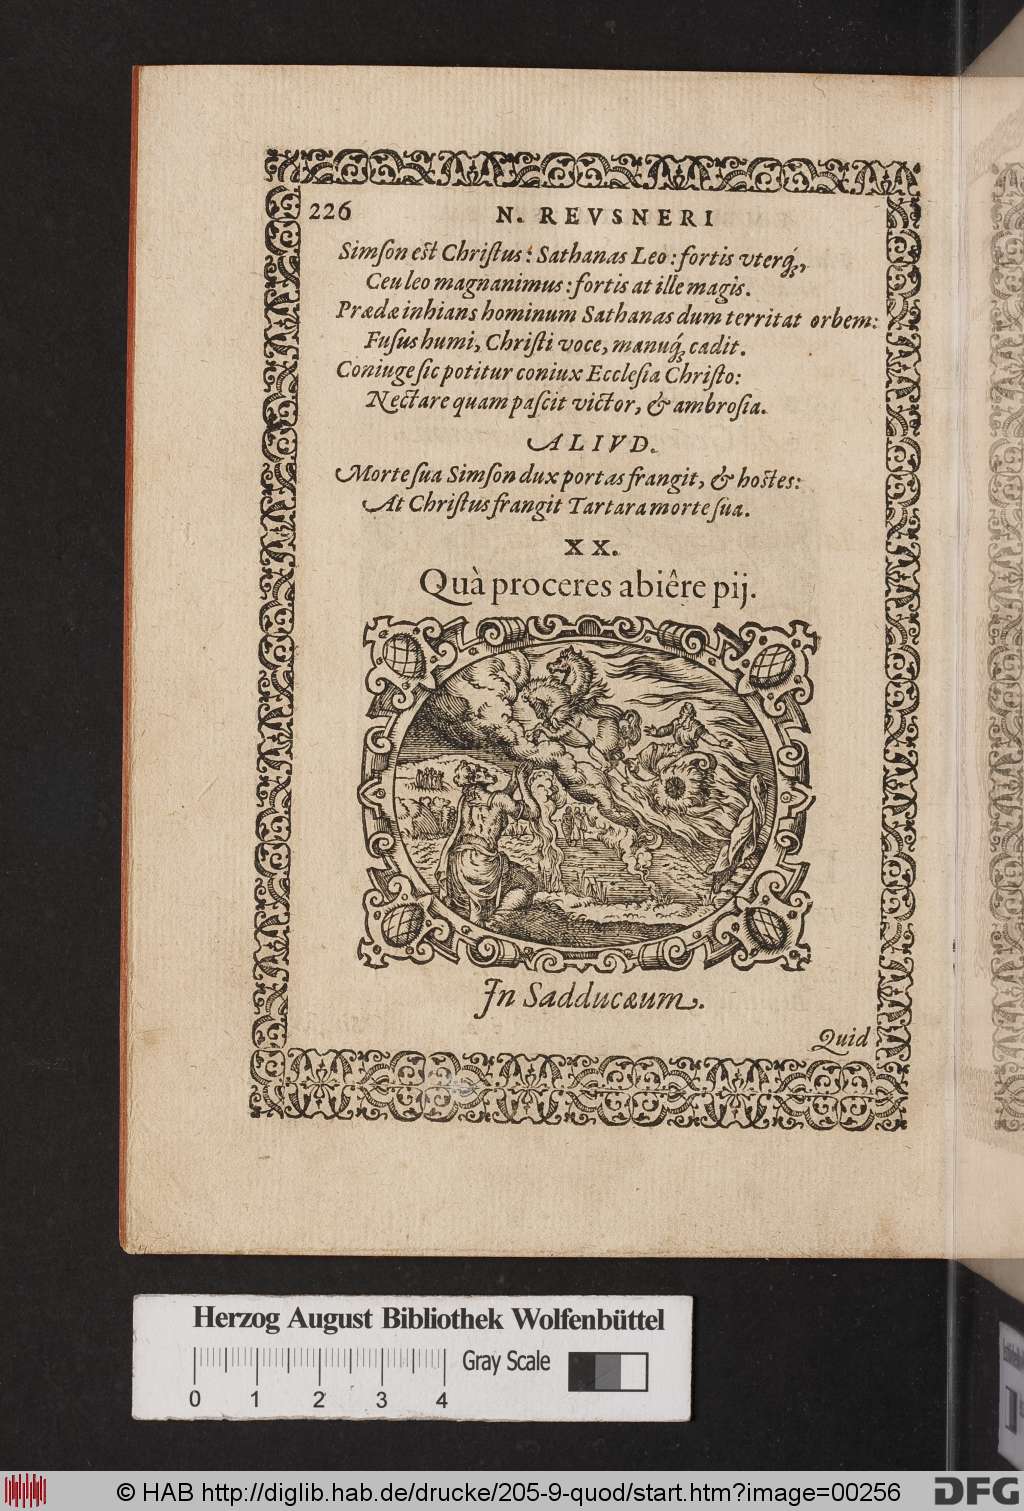 226
N. REVSNERI
Simſon est Chriſtus: Sathanas Leo: fortis vterq́ꝫ,
Ceu leo magnanimus: fortis at ille magis.
Prædæ inhians hominum Sathanas dum territat orbem:
Fuſus humi, Chriſti voce, manuq́ꝫ cadit.
Coniuge ſic potitur coniux Eccleſia Chriſto:
Nectare quam paſcit victor, & ambroſia.
ALIVD.
Morte ſua Simſon dux portas frangit, & hostes:
At Chriſtus frangit Tartara morte ſua.
XX.
Quà proceres abiêre pij.
In Sadducæum.
Quid
Herzog August Bibliothek Wolfenbüttel
Gray Scale
0 1 2 3 4
© HAB http://diglib.hab.de/drucke/205-9-quod/start.htm?image=00256
DFG